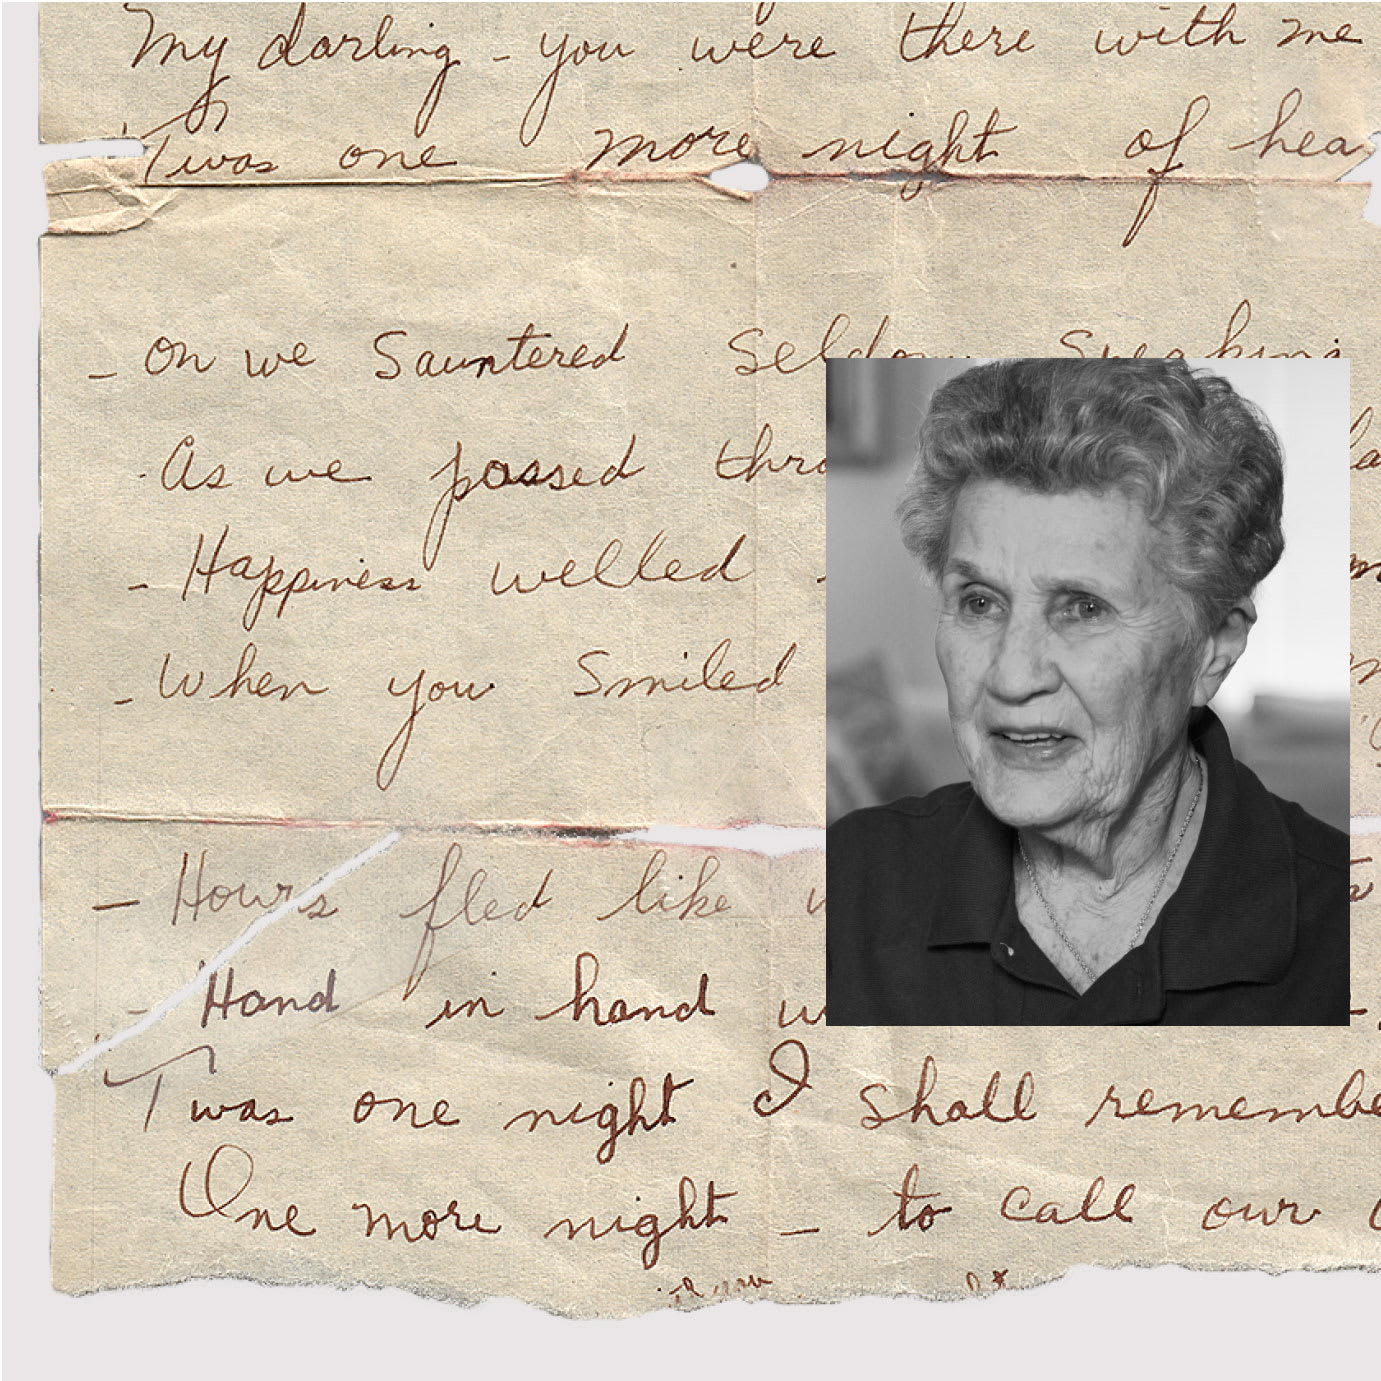 My darling - you were there with me
'Twas one more night of
- On we Sauntered Seldom Speaking
As we passed
- Happiness welled
- When you Smiled
- Hours fled like
- Hand in hand
'Twas one night I shall
One more night - to call our